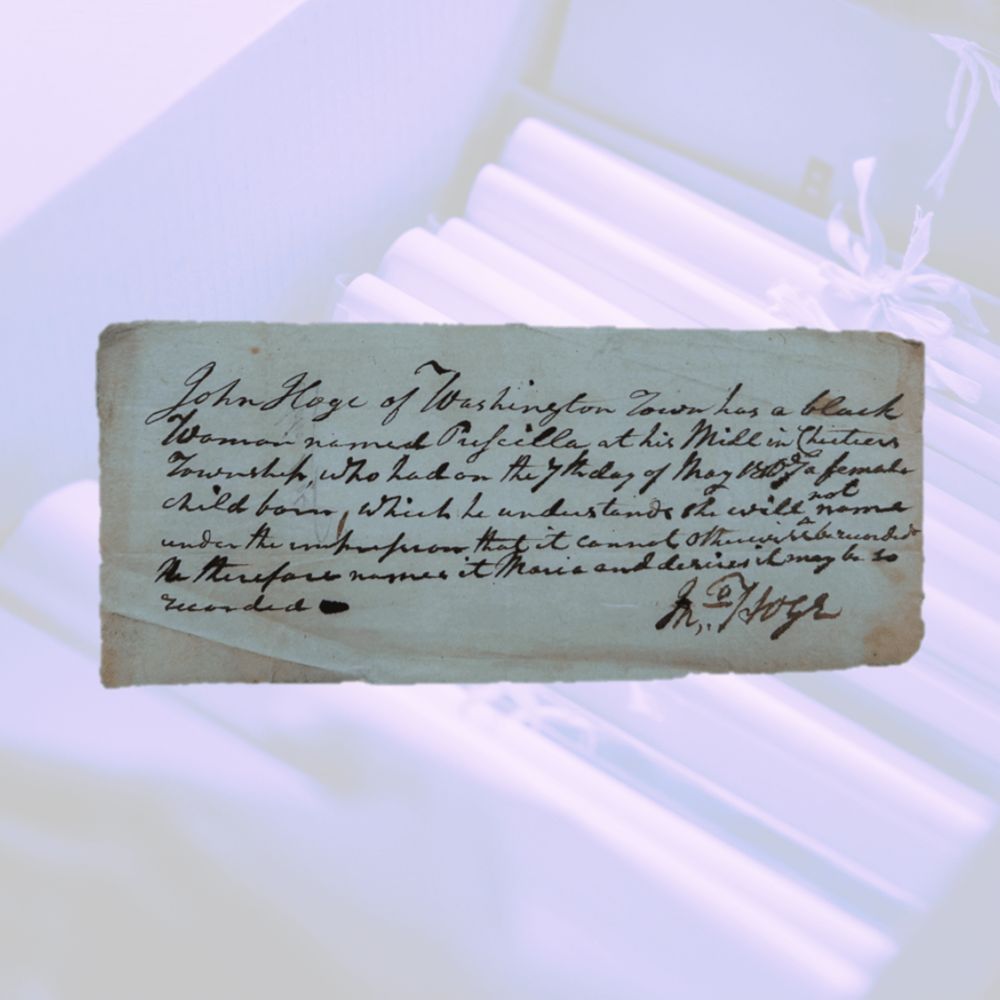 John Hoge of Washington Town has a black
Woman named Prifcilla at his Mill in Chirtiers
Township, who had on the 7th day of May a female
child born, which he understands she will not name
under the imprefsion that it cannot otherwise be recorded
He therefore names it Maria and desires it may be so
recorded
Jno. Hoge